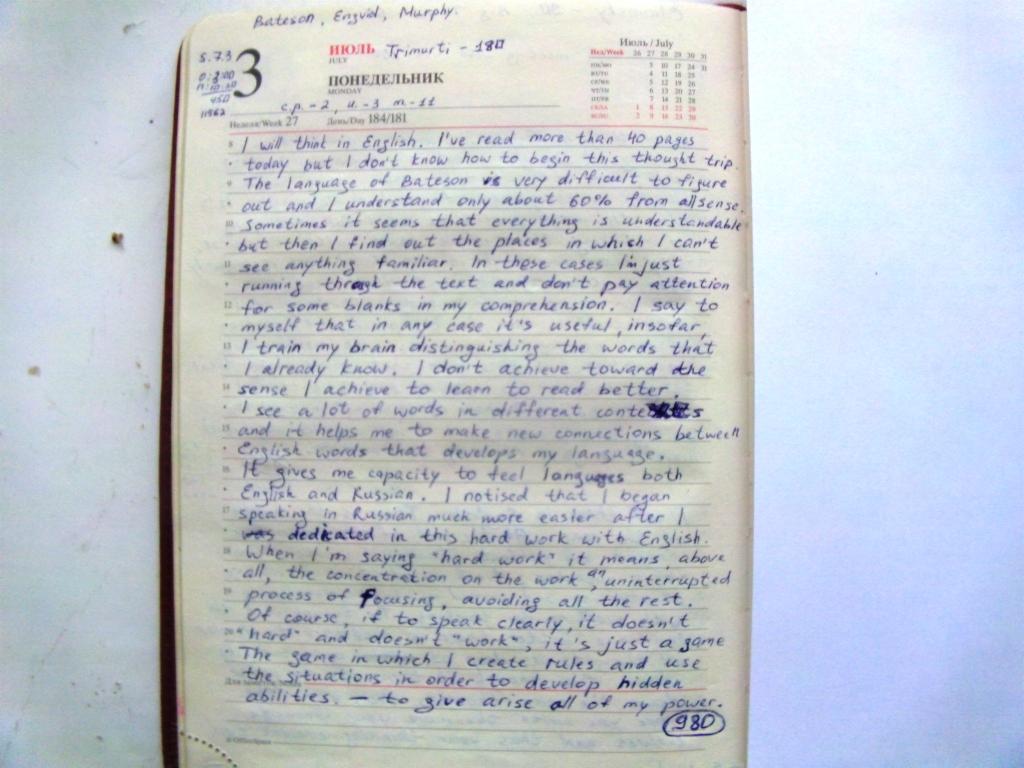 Bateson, Engvid, Murphy.
5.73
3
ИЮЛЬ Trimurti - 180
JULY
ПОНЕДЕЛЬНИК
MONDAY
c.p. - 2, u. - 3 m - 11
450
11862
Неделя/Week 27 День/Day 184/181
Июль / July
Нед/Week 26 27 28 29 30 31
пн/mo 3 10 17 24 31
вт/tu 4 11 18 25
ср/we 5 12 19 26
чт/th 6 13 20 27
пт/fr 7 14 21 28
сб/sa 1 8 15 22 29
вс/su 2 9 16 23 30
8 I will think in English. I've read more than 40 pages
today but I don't know how to begin this thought trip.
9 The language of Bateson is very difficult to figure
out and I understand only about 60% from all sense.
10 Sometimes it seems that everything is understandable
but then I find out the places in which I can't
11 see anything familiar. In these cases I'm just
running through the text and don't pay attention
12 for some blanks in my comprehension. I say to
myself that in any case it's useful, insofar,
13 I train my brain distinguishing the words that
I already know. I don't achieve toward the
14 sense I achieve to learn to read better.
I see a lot of words in different contexts
15 and it helps me to make new connections between
English words that develops my language.
16 It gives me capacity to feel languages both
English and Russian. I notised that I began
17 speaking in Russian much more easier after I
was dedicated in this hard work with English.
18 When I'm saying "hard work" it means, above
all, the concentration on the work, an uninterrupted
19 process of focusing, avoiding all the rest.
Of course, if to speak clearly, it doesn't
20 "hard" and doesn't "work", it's just a game
The game in which I create rules and use
the situations in order to develop hidden
abilities. — to give arise all of my power.
980